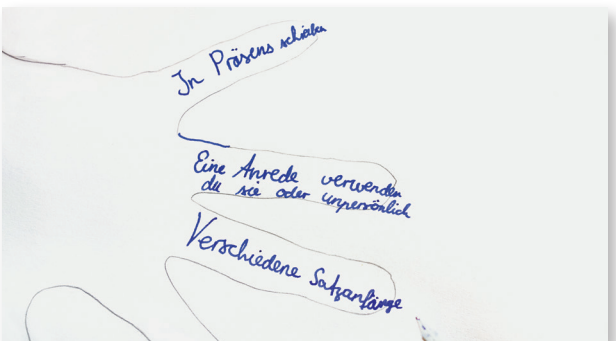 In Präsens schreiben
Eine Anrede verwenden
du sie oder unpersönlich
Verschiedene Satzanfänge